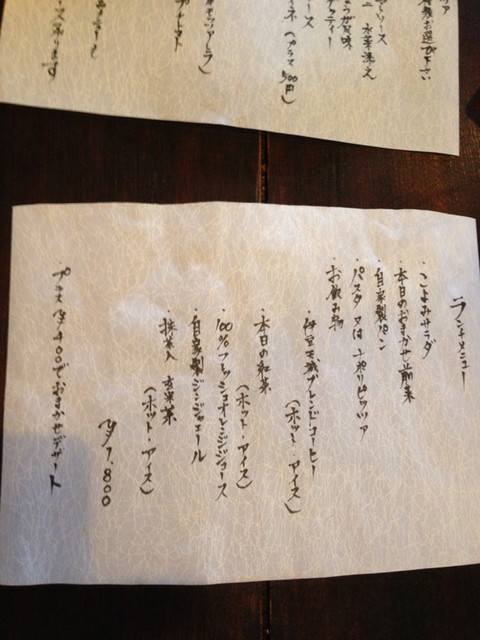 お選び下さい
トソース
水菜添え
ース
(プラス500円)
ランチメニュー
・こよみサラダ
・本日のおまかせ前菜
・自家製パン
・パスタ 又は ナポリピッツァ
・お飲み物
・伊豆天城ブレンドコーヒー
(ホット・アイス)
・本日の紅茶
(ホット・アイス)
・100%フレッシュオレンジジュース
・自家製ジンジャエール
・抹茶入 玄米茶
(ホット・アイス)
¥1,800
プラス¥400でおまかせデザート